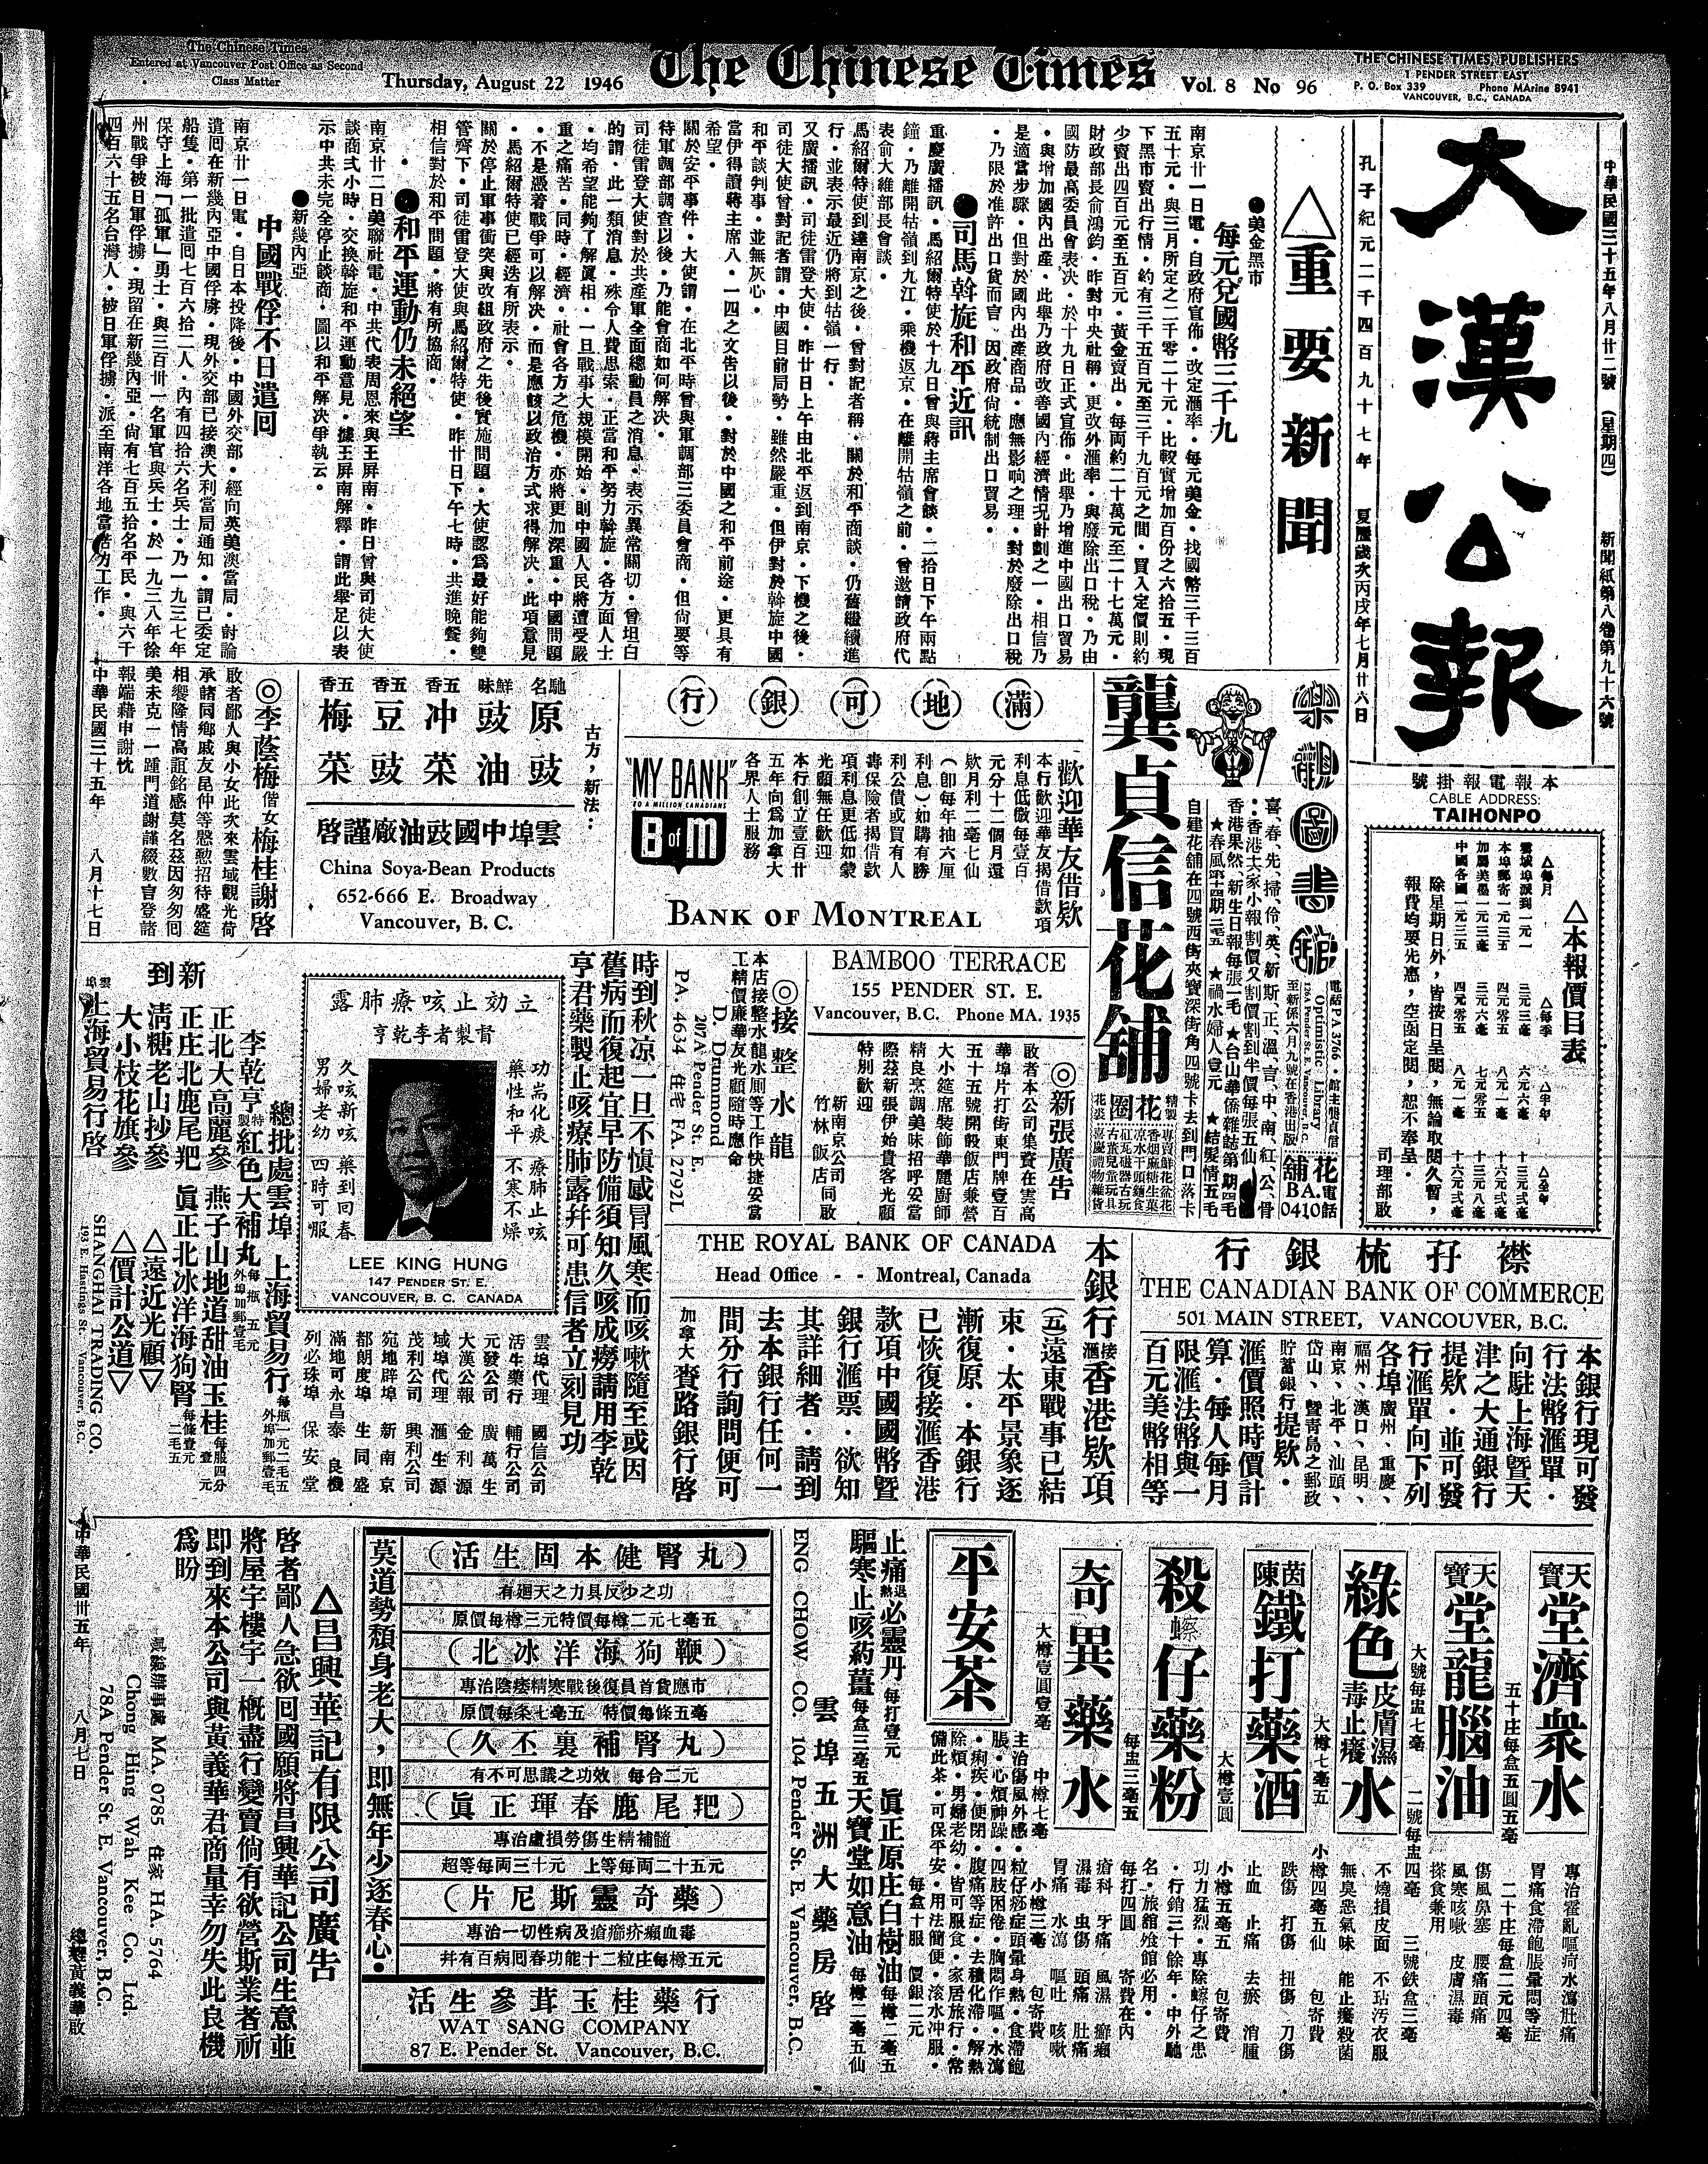 The Chinese Times
Entered at Vancouver Post Office as Second
Class Matter
Thursday, August 22 1946
The Chinese Times
Vol. 8 No 96
THE CHINESE TIMES, PUBLISHERS
1 PENDER STREET EAST
P. O. Box 339 Phone MArine 8941
VANCOUVER, B.C., CANADA
中華民國三十五年八月廿二號 (星期四) 新聞紙第八卷第九十六號
大漢公報
孔子紀元二千四百九十七年 夏曆歲次丙戌年七月廿六日
本報電報掛號
CABLE ADDRESS:
TAIHONPO
△本報價目表
除星期日外，皆按日呈閱，無論取閱久暫，
報費均要先惠，空函定閱，恕不奉呈。
司理部啟
△重要新聞
●美金黑市
每元兌國幣三千九
南京廿一日電・自政府宣佈・改定滙率・每元美金・找國幣三千三百
五十元・與三月所定之二千零二十元・比較實增加百份之六拾五・現
下黑市賣出行情・約有三千五百元至三千九百元之間・買入定價則約
少賣出四百元至五百元・黃金賣出・每両約二十萬元至二十七萬元・
財政部長俞鴻鈞・昨對中央社稱・更改外滙率・與廢除出口稅・乃由
國防最高委員會表决・於十九日正式宣佈・此舉乃增進中國出口貿易
・與增加國內出產・此舉乃政府改善國內經濟情况計劃之一・相信乃
是適當步驟・但對於國內出產商品・應無影响之理・對於廢除出口稅
・乃限於准許出口貨而言・因政府尙統制出口貿易・
●司馬斡旋和平近訊
重慶廣播訊・馬紹爾特使於十九日曾與蔣主席會談・二拾日下午兩點
鐘・乃離開牯嶺到九江・乘機返京・在離開牯嶺之前・曾邀請政府代
表俞大維部長會談・
馬紹爾特使到達南京之後・曾對記者稱・關於和平商談・仍舊繼續進
行・並表示最近仍將到牯嶺一行・
又廣播訊・司徒雷登大使・昨廿日上午由北平返到南京・下機之後・
司徒大使曾對記者謂・中國目前局勢・雖然嚴重・但伊對於斡旋中國
和平談判事・並無灰心・
當伊得讀蔣主席八・一四之文告以後・對於中國之和平前途・更具有
希望・
關於安平事件・大使謂・在北平時曾與軍調部三委員會商・但尙要等
待軍調部調查以後・乃能會商如何解决・
司徒雷登大使對於共產軍全面總動員之消息・表示異常關切・曾坦白
的謂・此一類消息・殊令人費思索・正當和平努力斡旋・各方面人士
・均希望能夠了解眞相・一旦戰事大規模開始・則中國人民將遭受嚴
重之痛苦・同時・經濟・社會各方之危機・亦將更加深重・中國問題
・不是憑着戰爭可以解决・而是應該以政治方式求得解决・此項意見
・馬紹爾特使已經迭有所表示・
關於停止軍事衝突與改組政府之先後實施問題・大使認爲最好能夠雙
管齊下・司徒雷登大使與馬紹爾特使・昨廿日下午七時・共進晚餐・
相信對於和平問題・將有所協商・
●和平運動仍未絕望
南京廿二日美聯社電・中共代表周恩來與王屏南・昨日曾與司徒大使
談商弍小時・交換斡旋和平運動意見・據王屏南解釋・謂此舉足以表
示中共未完全停止談商・圖以和平解决爭執云。
●新幾內亞
中國戰俘不日遣回
南京廿一日電・自日本投降後・中國外交部・經向英美澳當局・討論
遣囘在新幾內亞中國俘虜・現外交部已接澳大利當局通知・謂已委定
船隻・第一批遣囘七百六拾二人・內有四拾六名兵士・乃一九三七年
保守上海「孤軍」勇士・與三百卅一名軍官與兵士・於一九三八年徐
州戰爭被日軍俘擄・現留在新幾內亞・尙有七百五拾名平民・與六千
四百六十五名台灣人・被日軍俘擄・派至南洋各地當苦力工作・
樂觀圖書館
電話 PA. 3766・館主龔貞信
Optimistic Library
126A Pender St. E. Vancouver, B.C.
喜、春、先、掃、伶、英、新、斯、正、溫、言、中、南、紅、公、骨
：香港大家小報割價又割價割到半價每張五仙
香港果然、新生日報每張一毛 ★台山華僑雜誌第一期四毛
★禍水婦人壹元 ★結髮情五毛
自建花舖在四號西街夾寶深街角四號卡去到門口落卡
龔貞信花舖
花圈
花舖電話
BA. 0410
(滿)(地)(可)(銀)(行)
歡迎華友借欵
本行歡迎華友揭借款項
利息低儆每壹百
元分十二個月還
欵月利二毫七仙
(卽每年抽六厘
利息)如購有勝
利公債或買有人
壽保險者揭借款
項利息更低如蒙
光顧無任歡迎
本行創立壹百廿
五年向爲加拿大
各界人士服務
"MY BANK"
TO A MILLION CANADIANS
B of M
BANK OF MONTREAL
馳名 原豉
鮮味 豉油
五香 冲菜
五香 豆豉
五香 梅菜
古方，新法：
雲埠中國豉油廠謹啓
China Soya-Bean Products
652-666 E. Broadway
Vancouver, B. C.
◎李蔭梅偕女梅桂謝啓
敢者鄙人與小女此次來雲域觀光荷
承諸同鄉戚友昆仲等慇懃招待盛筵
相饗隆情高誼銘感莫名茲因匆匆囘
美未克一一踵門道謝謹綴數言登諸
報端藉申謝忱
中華民國三十五年 八月十七日
BAMBOO TERRACE
155 PENDER ST. E.
Vancouver, B.C. Phone MA. 1935
◎新張廣告
啟者本公司集資在雲高
華埠片打街東門牌壹百
五十五號開設飯店兼營
大小筵席裝飾華麗廚師
精良烹調美味招呼妥當
際茲新張伊始貴客光顧
特別歡迎
新南京公司
竹林飯店 同啟
◎接整水龍
本店接整水龍水厠等工作快捷妥當
工精價廉華友光顧隨時應命
D. Drummond
207A Pender St. E.
PA. 4634 住宅 FA. 2792L
時到秋凉一旦不愼感冒風寒而咳嗽隨至或因
舊病而復起宜早防備須知久咳成癆請用李乾
亨君藥製止咳療肺露并可患信者立刻見功
立効止咳療肺露
督製者李乾亨
功能化痰 療肺止咳
藥性和平 不寒不燥
久咳新咳 藥到回春
男婦老幼 四時可服
LEE KING HUNG
147 PENDER ST. E.
VANCOUVER, B. C. CANADA
雲埠代理 國信公司
活生藥行 輔行公司
元發公司 廣萬生
大漢公報 金利源
域埠代理 滙生源
茂利公司 興利公司
宛地辟埠 新南京
都朗度埠 生同盛
滿地可永昌泰 良機
列必珠埠 保安堂
總批處雲埠 上海貿易行
李乾亨特製紅色大補丸
新到
正北大高麗參 燕子山地道甜油玉桂
正庄北鹿尾羓 眞正北冰洋海狗腎
淸糖老山抄參 △遠近光顧▽
大小枝花旗參 △價計公道▽
雲埠上海貿易行啓
SHANGHAI TRADING CO.
193 E. Hastings St. Vancouver, B.C.
THE ROYAL BANK OF CANADA
Head Office - - Montreal, Canada
本銀行接滙香港欵項
(五)遠東戰事已結
束・太平景象逐
漸復原・本銀行
已恢復接滙香港
款項中國國幣曁
銀行滙票・欲知
其詳細者・請到
去本銀行任何一
間分行詢問便可
加拿大賚路銀行啓
襟孖梳銀行
THE CANADIAN BANK OF COMMERCE
501 MAIN STREET, VANCOUVER, B.C.
本銀行現可發
行法幣滙單・
向駐上海暨天
津之大通銀行
提欵・並可發
行滙單向下列
各埠廣州・重慶、
福州、漢口、昆明、
南京、北平、汕頭、
岱山、暨靑島之郵政
貯蓄銀行提欵・
滙價照時價計
算・每人每月
限滙法幣與一
百元美幣相等
天寶堂濟衆水
專治霍亂嘔疴水瀉肚痛
胃痛食滯飽脹暈悶等症
五十庄每盒五圓五毫
二十庄每盒二元四毫
天寶堂龍腦油
傷風鼻塞 腰痛頭痛
風寒咳嗽 皮膚濕毒
搽食兼用
大號每盅七毫 二號每盅四毫 三號鉄盒三毫
綠色皮膚濕毒止癢水
不燒損皮面 不玷汚衣服
無臭惡氣味 能止癢殺菌
大樽七毫五 小樽四毫五仙 包寄費
茵陳鐵打藥酒
跌傷 打傷 扭傷 刀傷
止血 止痛 去瘀 消腫
大樽壹圓 小樽五毫五 包寄費
殺蟟仔藥粉
功力猛烈・專除蟟仔之患
・行銷三十餘年・中外馳
名・旅館飧館必用・
每盅三毫五 每打四圓 寄費在內
奇異藥水
瘡科 牙痛 風濕 癬癩
濕毒 虫傷 頭痛 肚痛
胃痛 水瀉 嘔吐 咳嗽
大樽壹圓壹毫 中樽七毫 小樽三毫 包寄費
平安茶
主治傷風外感・粒仔痧症頭暈身熱・食滯飽
脹・心煩神躁・四肢困倦・胸悶作嘔・水瀉
・痢疾・便閉・腹痛等症・去積化滯・解熱
除煩・男婦老幼・皆可服食・家居旅行・常
備此茶・可保平安・用法簡便・滾水冲服・
每盒十服 價銀二元
止痛退熱必靈丹 每打壹元 眞正原庄白樹油 每樽二毫五
驅寒止咳葯薑 每盒三毫五 天寶堂如意油 每樽二毫五仙
雲埠五洲大藥房啓
ENG CHOW CO. 104 Pender St. E. Vancouver, B.C.
(活生固本健腎丸)
有廻天之力具反少之功
原價每樽三元特價每樽二元七毫五
(北冰洋海狗鞭)
專治陰痿精寒戰後復員首貨應市
原價每条七毫五 特價每條五毫
(久丕裏補腎丸)
有不可思議之功效 每合二元
(眞正琿春鹿尾羓)
專治虛損勞傷生精補髓
超等每両三十元 上等每両二十五元
(片尼斯靈奇藥)
專治一切性病及瘡癤疥癩血毒
并有百病囘春功能十二粒庄每樽五元
莫道勢頹身老大，即無年少逐春心。
活生參茸玉桂藥行
WAT SANG COMPANY
87 E. Pender St. Vancouver, B.C.
△昌興華記有限公司廣告
啓者鄙人急欲囘國願將昌興華記公司生意並
將屋宇樓宇一概盡行變賣倘有欲營斯業者祈
即到來本公司與黃義華君商量幸勿失此良機
爲盼
寫字辦事處 MA. 0785 住家 HA. 5764
Chong Hing Wah Kee Co. Ltd.
78A Pender St. E. Vancouver, B.C.
中華民國卅五年 八月七日 總理黃義華啟